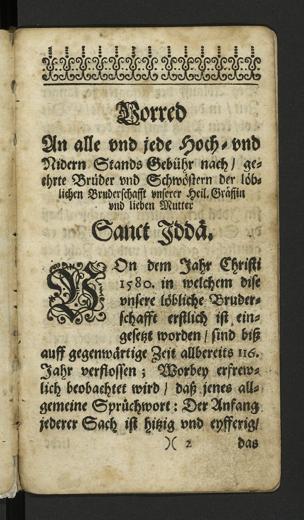 Vorred
An alle vnd jede Hoch- vnd
Nidern Stands Gebühr nach/ ge-
ehrte Brüder vnd Schwöstern der löb-
lichen Bruderschafft vnserer Heil. Gräffin
vnd lieben Mutter
Sanct Jddä.
VOn dem Jahr Christi
1580. in welchem dise
vnsere löbliche Bruder-
schafft erstlich ist ein-
gesetzt worden/ sind biß
auff gegenwärtige Zeit allbereits 116.
Jahr verflossen; Worbey erfrew-
lich beobachtet wird/ daß jenes all-
gemeine Sprüchwort: Der Anfang
jederer Sach ist hitzig vnd eyfferig/
)( 2 das